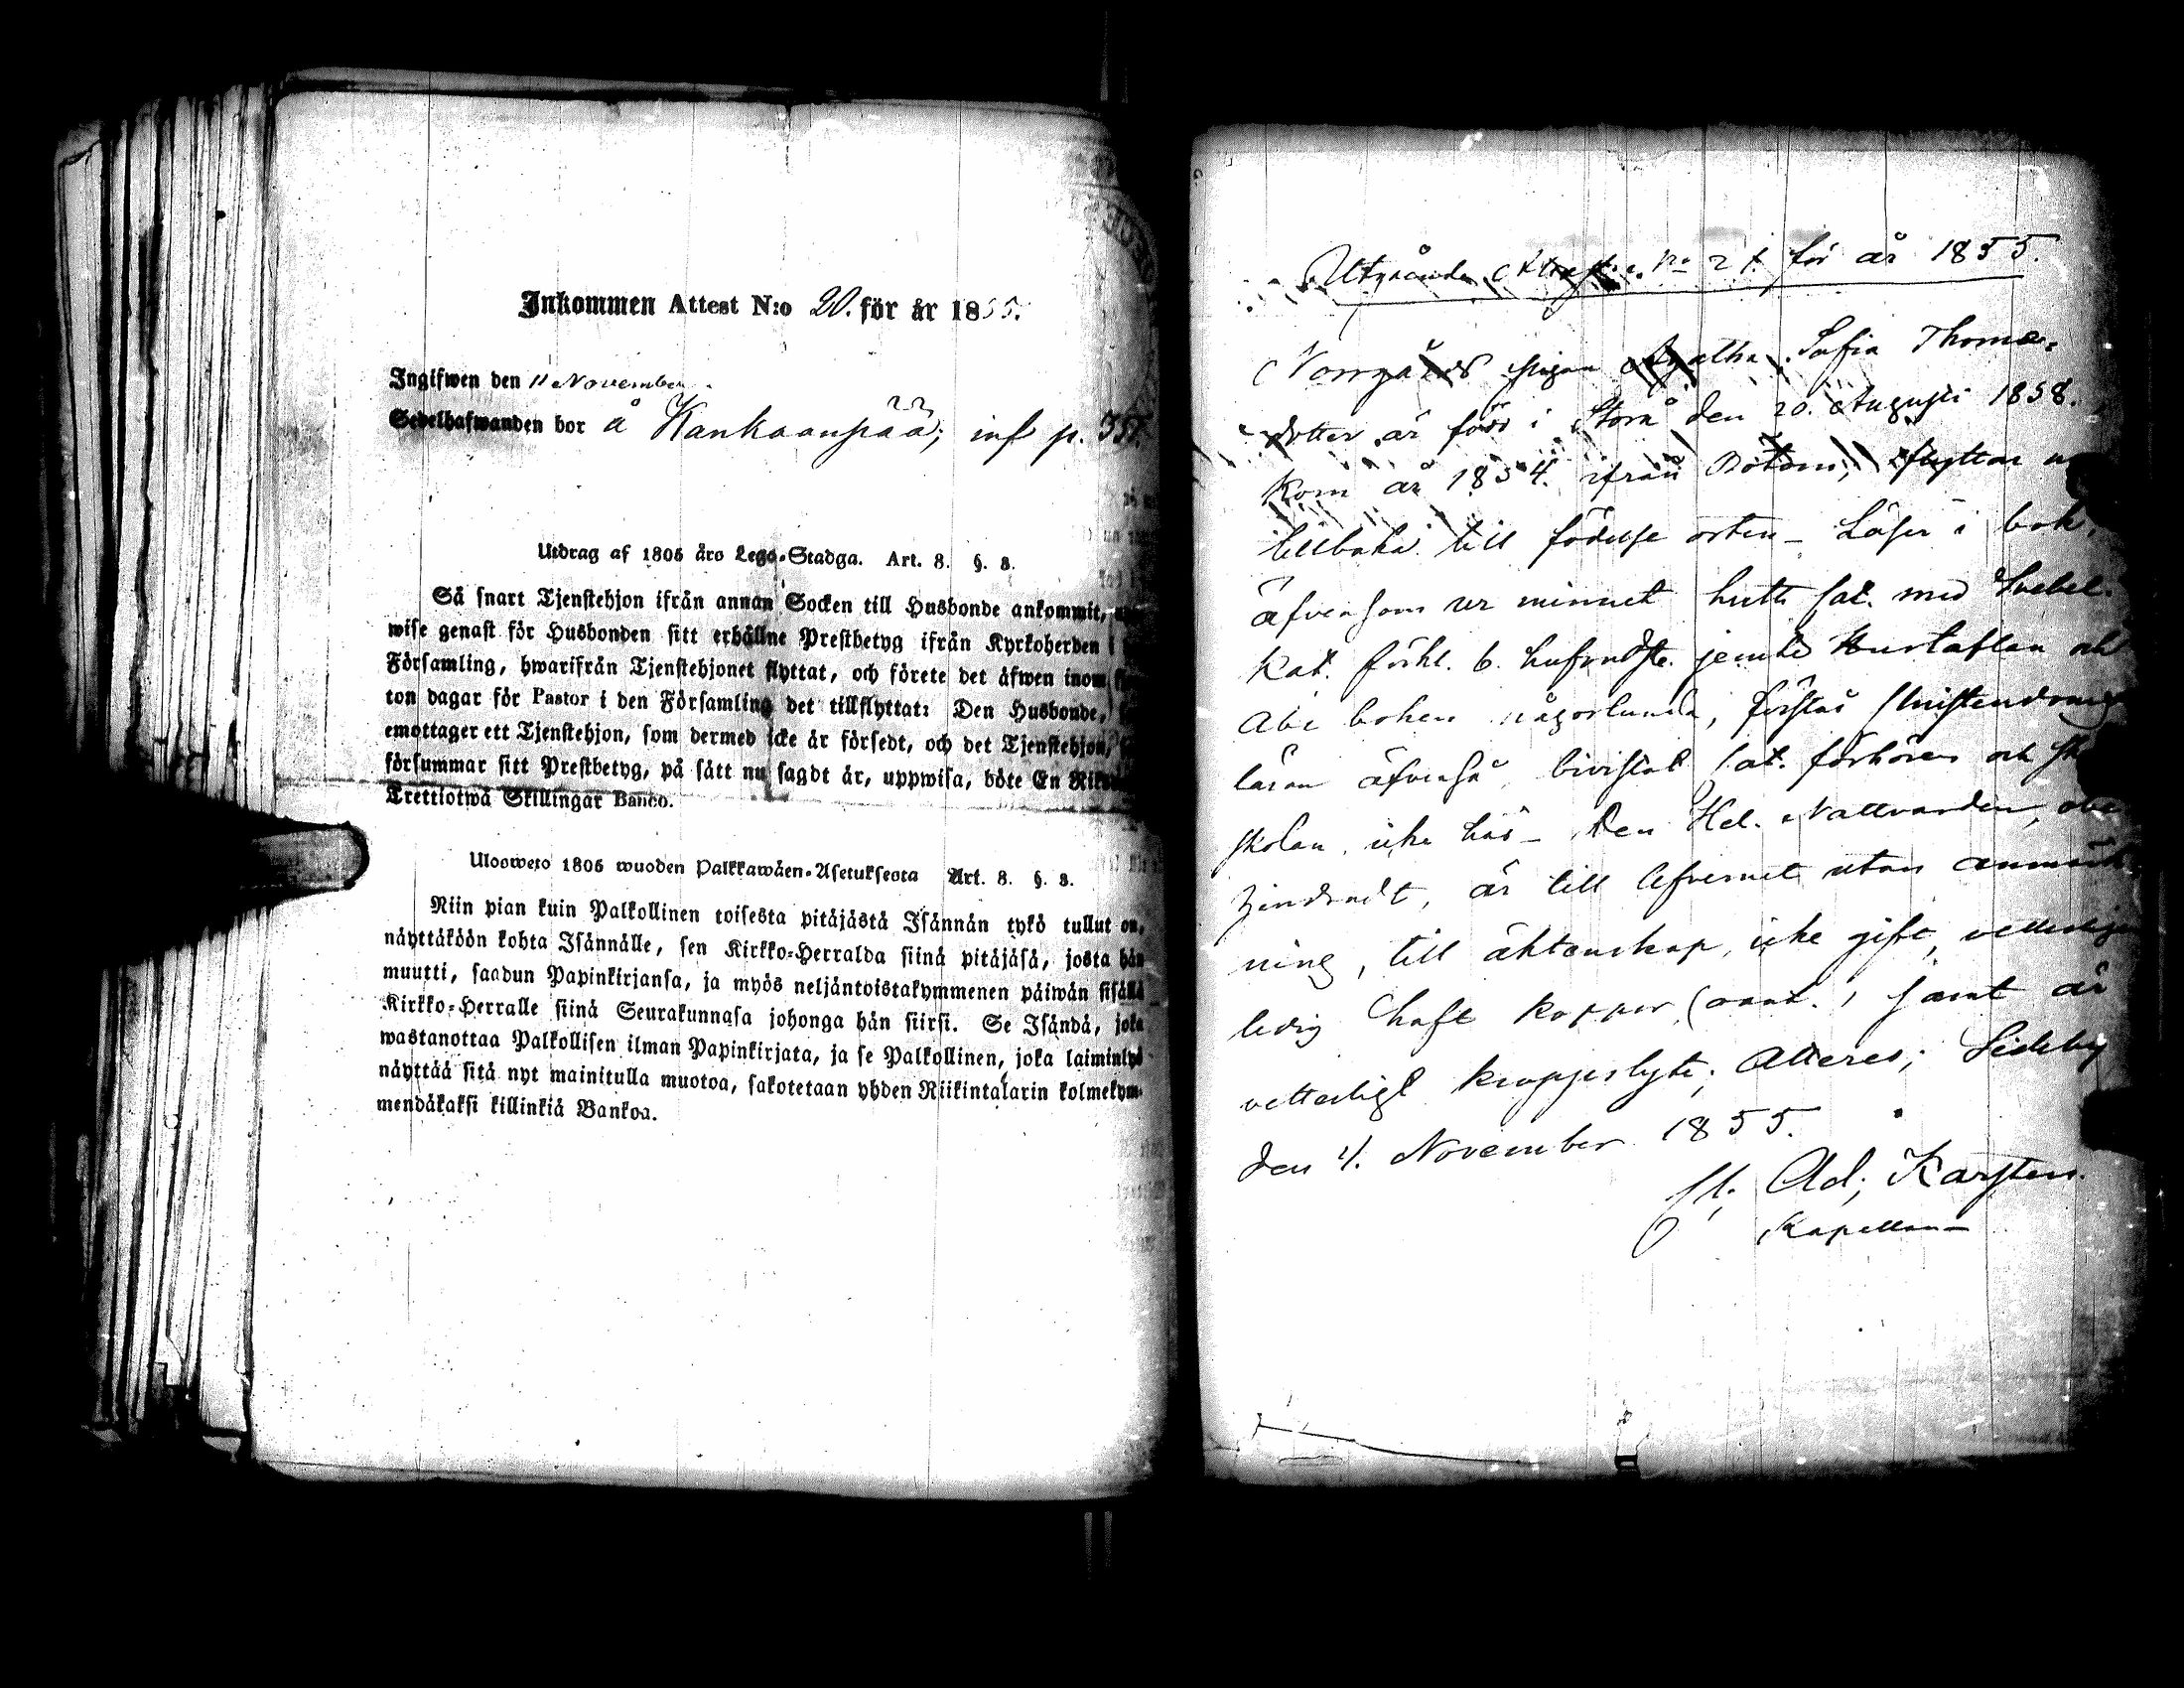 Inkommen Attest N:o 20. för år 1855.
Ingifwen den 11 November.
Sedelhafwanden bor å Kankaanpää; inf p. 357.
Utdrag af 1805 års Lego-Stadga. Art. 8. §. 8.
Så snart Tjenstehjon ifrån annan Socken till Husbonde ankommit,
wise genast för Husbonden sitt erhållne Prestbetyg ifrån Kyrkoherden i
Församling, hwarifrån Tjenstehjonet flyttat, och förete det äfwen inom
ton dagar för Pastor i den Församling det tillflyttat: Den Husbonde,
emottager ett Tjenstehjon, som dermed icke är försedt, och det Tjenstehjon,
försummar sitt Prestbetyg, på sätt nu sagdt är, uppwisa, böte En
Trettiotwå Skillingar Banco.
Ulosweto 1805 wuoden Palkkawäen-Asetuksesta Art. 8. §. 8.
Niin pian kuin Palkollinen toisesta pitäjästä Isännän tykö tullut on,
näyttäköön kohta Isännälle, sen Kirkko-Herralda siinä pitäjäsä, josta hän
muutti, saadun Papinkirjansa, ja myös neljäntoistakymmenen päiwän sisällä
Kirkko-Herralle siinä Seurakunnasa johonga hän siirsi. Se Isändä, joka
wastanottaa Palkollisen ilman Papinkirjata, ja se Palkollinen, joka laiminlyö
näyttää sitä nyt mainitulla muotoa, sakotetaan yhden Riikintalarin kolmekym-
mendäkaksi killinkiä Bankoa.
Utgående Attest No 21. för år 1855.
Norrgårds pigan Agatha Sofia Thomæ
dotter är född i Storå den 20. Augusti 1838.
kom år 1854. ifrån Bötom, flyttar
tillbaka till födelse orten - Läser i bok,
äfvensom ur minnet Luth. Cat. med Svebel.
Kat. förkl. b. hufvudst. jemte Hustaflan och
Abc boken någorlunda, förstår Christendoms
läran äfvenså bivistat Cat. förhören och
skolan icke här - Den Hel. Nattvarden,
hindradt, är till lefvernet utan anmärk
ning, till äktenskap, icke gift,
ledig haft koppor, samt är
vetterligt kroppslyte; Atteres; Sideby
den 4. November 1855.
Ad; Karsten.
Kapellan